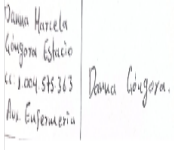 Danna Marcela
Góngora Estacio
cc: 1.004.575.363
Aux. Enfermeria
Danna Góngora.